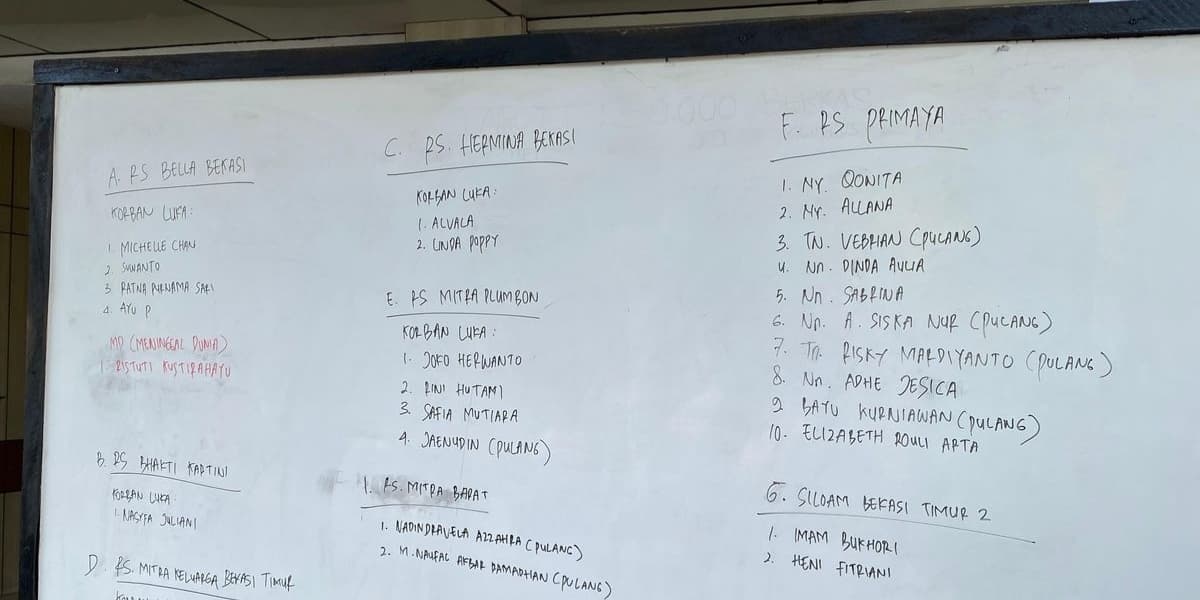 A. RS BELLA BEKASI
KORBAN LUKA:
1. MICHELLE CHAN
2. SUWANTO
3. RATNA PURNAMA SARI
4. AYU P
MD (MENINGGAL DUNIA)
1. RISTUTI KUSTIRAHAYU
B. RS BHAKTI KARTINI
KORBAN LUKA:
1. NASYFA JULIANI
D. RS. MITRA KELUARGA BEKASI TIMUR
C. RS. HERMINA BEKASI
KORBAN LUKA:
1. ALVALA
2. LINDA POPPY
E. RS MITRA PLUMBON
KORBAN LUKA:
1. JOKO HERWANTO
2. RINI HUTAMI
3. SAFIA MUTIARA
4. JAENUDIN (PULANG)
I. RS. MITRA BARAT
1. NADINDRAVELA AZZAHRA (PULANG)
2. M. NAUFAL AKBAR RAMADHAN (PULANG)
F. RS PRIMAYA
1. NY. QONITA
2. NY. ALLANA
3. TN. VEBRIAN (PULANG)
4. Nn. DINDA AULIA
5. Nn. SABRINA
6. Nn. A. SISKA NUR (PULANG)
7. Tn. RISKY MARDIYANTO (PULANG)
8. Nn. ADHE JESICA
9 BAYU KURNIAWAN (PULANG)
10. ELIZABETH ROULI ARTA
G. SILOAM BEKASI TIMUR 2
1. IMAM BUKHORI
2. HENI FITRIANI